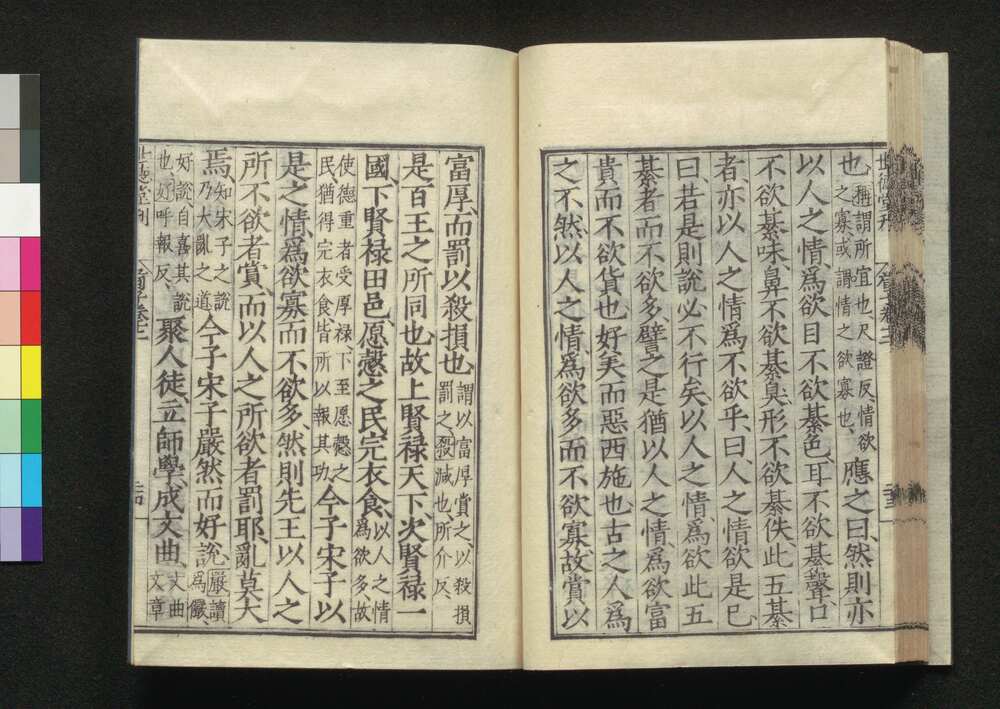 世德堂刊
荀子卷十二
二十三
也、稱謂所宜也尺證反、情欲之寡或謂情之欲寡也、應之曰、然則亦
以人之情爲欲目不欲綦色、耳不欲綦聲、口
不欲綦味、鼻不欲綦臭、形不欲綦佚、此五綦
者、亦以人之情爲不欲乎、曰、人之情欲是已
曰、若是則說必不行矣、以人之情爲欲此五
綦者而不欲多、譬之是猶以人之情爲欲富
貴而不欲貨也、好美而惡西施也、古之人爲
之不然、以人之情、爲欲多而不欲寡、故賞以
富厚、而罰以殺損也、謂以富厚賞之、以殺損罰之、殺減也、所介反、
是百王之所同也、故上賢祿天下、次賢祿一
國、下賢祿田邑、愿愨之民完衣食、以人之情爲欲多、故
使德重者受厚祿、下至愿愨之民猶得完衣食、皆所以報其功今子宋子以
是之情、爲欲寡而不欲多、然則先王以人之
所不欲者賞、而以人之所欲者罰耶、亂莫大
焉、知宋子之說乃大亂之道今子宋子嚴然而好說、嚴讀爲儼、
好說自喜其說也、好呼報反、聚人徒、立師學、成文曲、文曲文章
世德堂刊
荀子卷十二
二十四